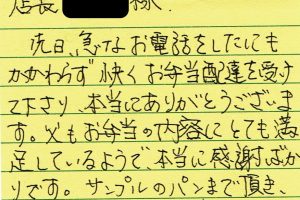 店長 様.
先日、急なお電話をしたにも
かかわらず快くお弁当配達を受け
て下さり、本当にありがとうございま
す。父もお弁当の内容にとても満
足しているようで、本当に感謝ばか
りです。サンプルのパンまで頂き、